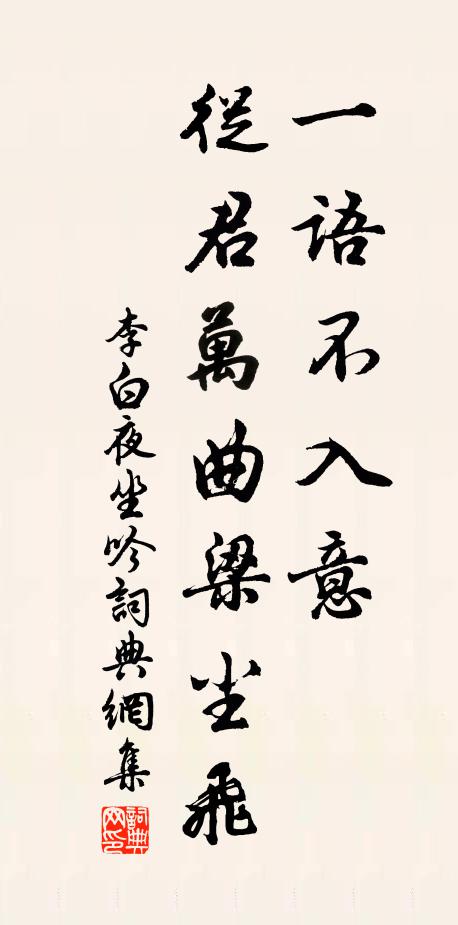 一語不入意
從君萬曲梁尘飛
李白夜坐吟詞典網集
詞典网印